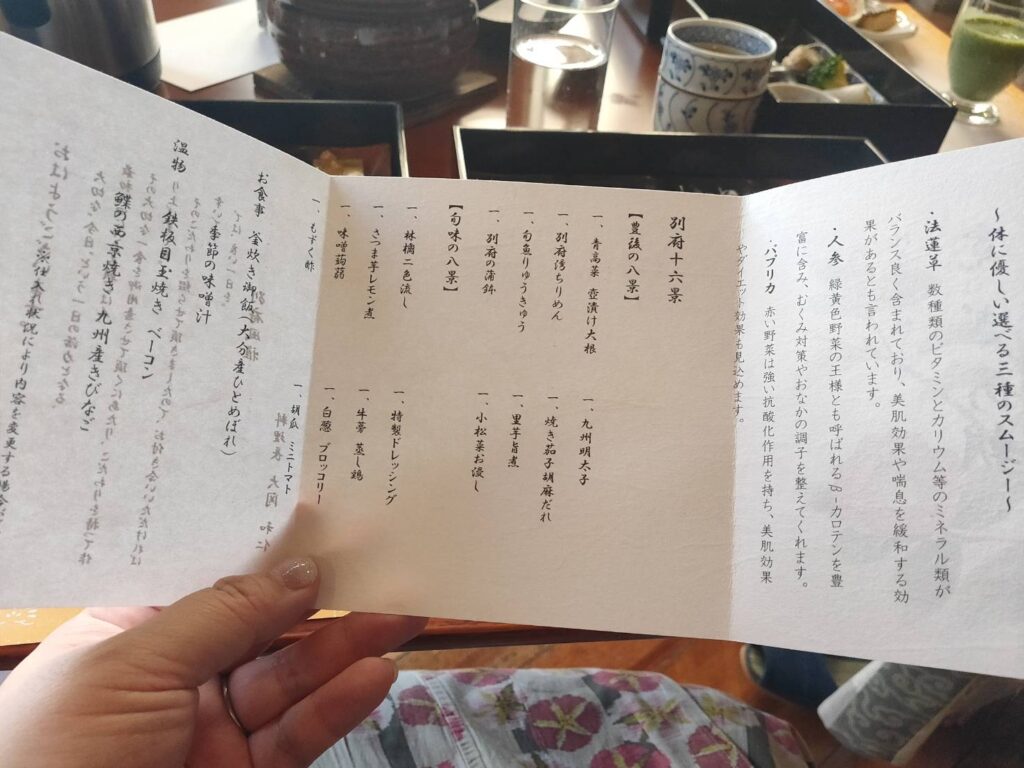 ～体に優しい選べる三種のスムージー～
・法蓮草 数種類のビタミンとカリウム等のミネラル類が
バランス良く含まれており、美肌効果や喘息を緩和する効
果があるとも言われています。
・人参 緑黄色野菜の王様とも呼ばれるβ-カロテンを豊
富に含み、むくみ対策やおなかの調子を整えてくれます。
・パプリカ 赤い野菜は強い抗酸化作用を持ち、美肌効果
やダイエット効果も見込めます。
別府十六景
【豊後の八景】
一、青高菜 壺漬け大根
一、別府湾ちりめん
一、旬魚りゅうきゅう
一、別府の蒲鉾
一、九州明太子
一、焼き茄子胡麻だれ
一、里芋旨煮
一、小松菜お浸し
【旬味の八景】
一、林檎二色流し
一、さつま芋レモン煮
一、味噌蒟蒻
一、もずく酢
一、特製ドレッシング
一、牛蒡 蒸し鶏
一、白葱 ブロッコリー
一、胡瓜 ミニトマト
お食事 釜炊き御飯(大分産ひとめぼれ)
季節の味噌汁
温物 鉄板目玉焼き ベーコン
鰈の西京焼き 九州産きびなご
仕入れ状況により内容を変更する場合